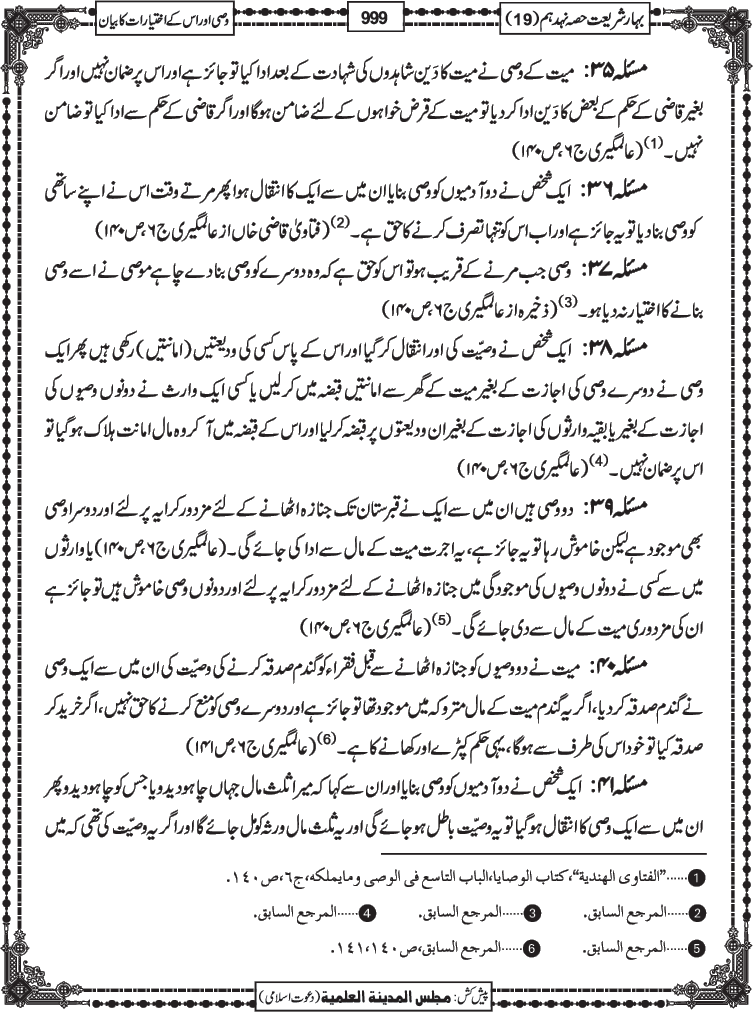 بہارِ شریعت حصہ نہدہم (19)
999
وصی اور اس کے اختیارات کا بیان
مسئلہ ۳۵: میت کے وصی نے میت کا دَین شاہدوں کی شہادت کے بعد ادا کیا تو جائز ہے اور اس پر ضمان نہیں اور اگر
بغیر قاضی کے حکم کے بعض کا دَین ادا کر دیا تو میت کے قرض خواہوں کے لئے ضامن ہوگا اور اگر قاضی کے حکم سے ادا کیا تو ضامن
نہیں۔(1) (عالمگیری ج۶، ص۱۴۰)
مسئلہ ۳۶: ایک شخص نے دو آدمیوں کو وصی بنایا ان میں سے ایک کا انتقال ہوا پھر مرتے وقت اس نے اپنے ساتھی
کو وصی بنا دیا تو یہ جائز ہے اور اب اس کو تنہا تصرف کرنے کا حق ہے۔(2) (فتاویٰ قاضی خاں از عالمگیری ج۶، ص۱۴۰)
مسئلہ ۳۷: وصی جب مرنے کے قریب ہو تو اس کو حق ہے کہ وہ دوسرے کو وصی بنا دے چاہے موصی نے اسے وصی
بنانے کا اختیار نہ دیا ہو۔(3) (ذخیرہ از عالمگیری ج۶، ص۱۴۰)
مسئلہ ۳۸: ایک شخص نے وصیّت کی اور انتقال کر گیا اور اس کے پاس کسی کی ودیعتیں (امانتیں) رکھی ہیں پھر ایک
وصی نے دوسرے وصی کی اجازت کے بغیر میت کے گھر سے امانتیں قبضہ میں کرلیں یا کسی ایک وارث نے دونوں وصیوں کی
اجازت کے بغیر یا بقیہ وارثوں کی اجازت کے بغیر ان ودیعتوں پر قبضہ کر لیا اور اس کے قبضہ میں آ کر وہ مال امانت ہلاک ہوگیا تو
اس پر ضمان نہیں۔(4) (عالمگیری ج۶، ص۱۴۰)
مسئلہ ۳۹: دو وصی ہیں ان میں سے ایک نے قبرستان تک جنازہ اٹھانے کے لئے مزدور کرایہ پر لئے اور دوسرا وصی
بھی موجود ہے لیکن خاموش رہا تو یہ جائز ہے، یہ اجرت میت کے مال سے ادا کی جائے گی۔ (عالمگیری ج۶، ص۱۴۰) یا وارثوں
میں سے کسی نے دونوں وصیوں کی موجودگی میں جنازہ اٹھانے کے لئے مزدور کرایہ پر لئے اور دونوں وصی خاموش ہیں تو جائز ہے
ان کی مزدوری میت کے مال سے دی جائے گی۔(5) (عالمگیری ج۶، ص۱۴۰)
مسئلہ ۴۰: میت نے دو وصیوں کو جنازہ اٹھانے سے قبل فقراء کو گندم صدقہ کرنے کی وصیّت کی ان میں سے ایک وصی
نے گندم صدقہ کر دیا، اگر یہ گندم میت کے مال متروکہ میں موجود تھا تو جائز ہے اور دوسرے وصی کو منع کرنے کا حق نہیں، اگر خرید کر
صدقہ کیا تو خود اس کی طرف سے ہوگا، یہی حکم کپڑے اور کھانے کا ہے۔(6) (عالمگیری ج۶، ص۱۴۱)
مسئلہ ۴۱: ایک شخص نے دو آدمیوں کو وصی بنایا اور ان سے کہا کہ میرا ثلث مال جہاں چاہو دیدو یا جس کو چاہو دیدو پھر
ان میں سے ایک وصی کا انتقال ہوگیا تو یہ وصیّت باطل ہو جائے گی اور یہ ثلث مال ورثہ کو مل جائے گا اور اگر یہ وصیّت کی تھی کہ میں
1 ......"الفتاوی الھندیۃ"، کتاب الوصایا، الباب التاسع فی الوصی ومایملکہ، ج٦، ص ١٤٠.
2 ......المرجع السابق. 3 ......المرجع السابق. 4 ......المرجع السابق.
5 ......المرجع السابق. 6 ......المرجع السابق، ص ١٤٠، ١٤١.
پیش کش: مجلس المدینۃ العلمیۃ (دعوت اسلامی)